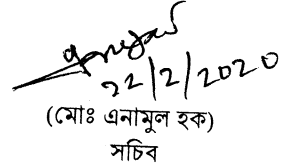 22/2/2020
(মোঃ এনামুল হক)
সচিব